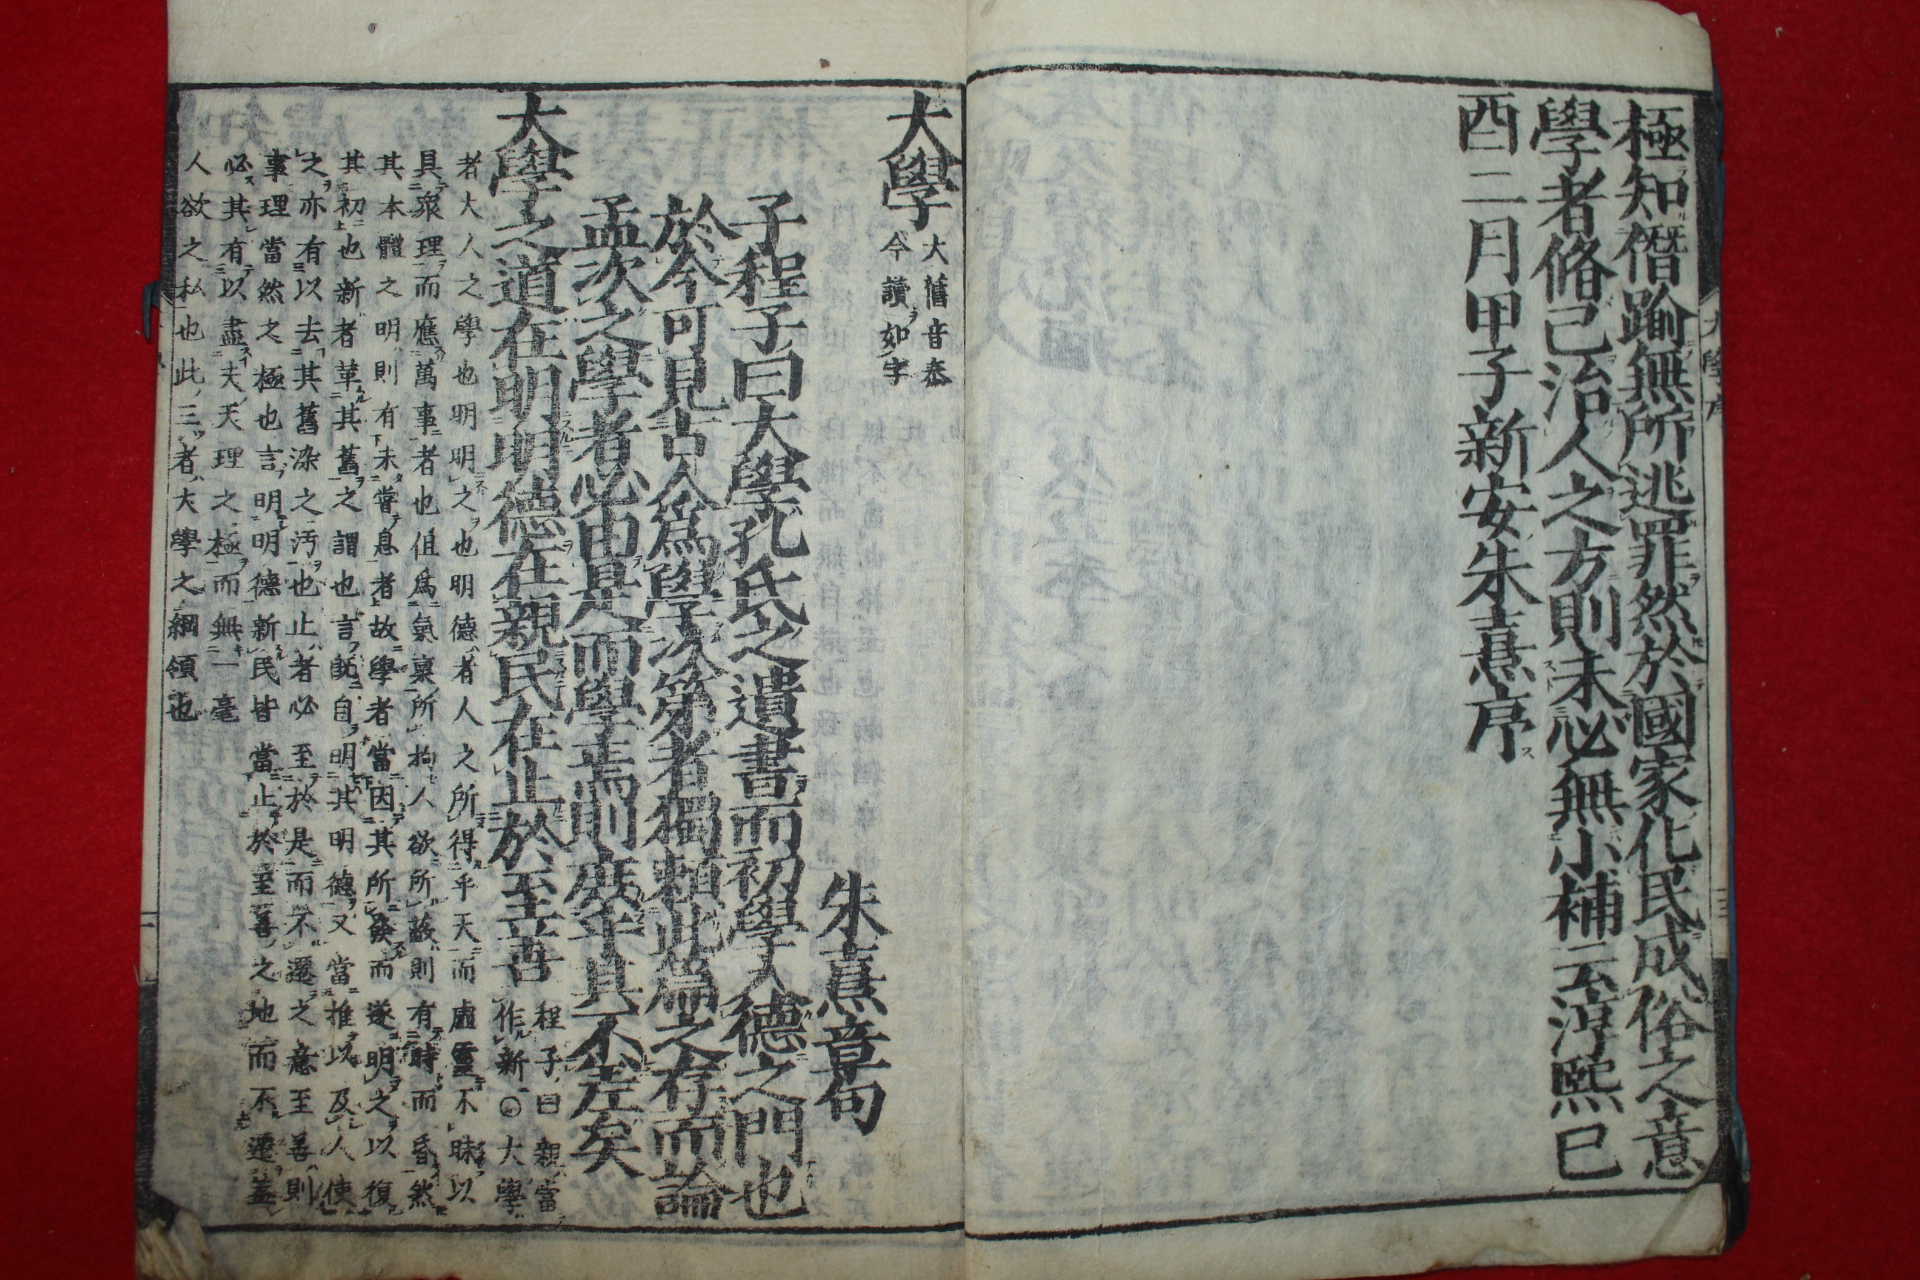 極知僭踰無所逃罪然於國家化民成俗之意
學者脩己治人之方則未必無小補云淳熙己
酉二月甲子新安朱熹序
大學序
三
大學
大舊音泰
今讀如字
朱熹章句
子程子曰大學孔氏之遺書而初學入德之門也
於今可見古人爲學次第者獨頼此篇之存而論
孟次之學者必由是而學焉則庶乎其不差矣
大學之道在明明德在親民在止於至善
程子曰親當
作新○大學
者大人之學也明明之也明德者人之所得乎天而虛靈不昧以
具衆理而應萬事者也但爲氣稟所拘人欲所蔽則有時而昏然
其本體之明則有未嘗息者故學者當因其所發而遂明之以復
其初也新者革其舊之謂也言旣自明其明德又當推以及人使
之亦有以去其舊染之汚也止者必至於是而不遷之意至善則
事理當然之極也言明明德新民皆當止於至善之地而不遷蓋
必其有以盡夫天理之極而無一毫
人欲之私也此三者大學之綱領也